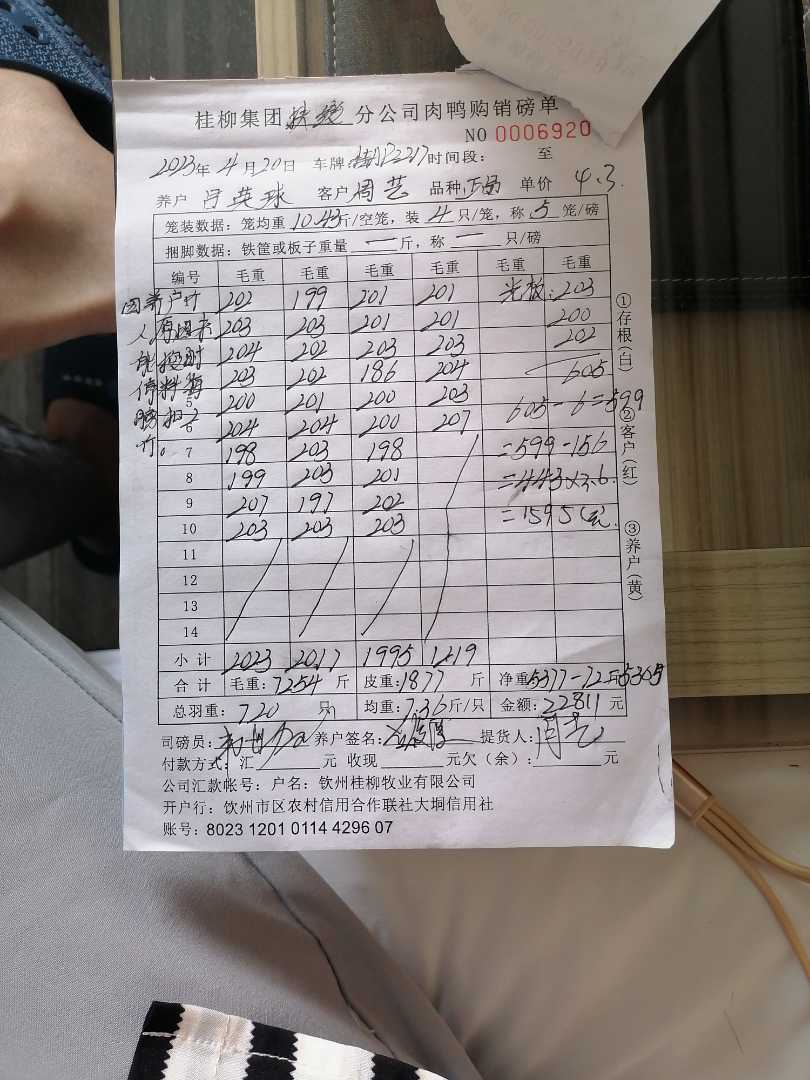 桂柳集团 分公司肉鸭购销磅单
NO 0006920
2023年 4月20日 车牌: 2217 时间段: 至
养户 吕英球 客户 周芸 品种 单价 4.3
笼装数据:笼均重 10.43 斤/空笼,装 4 只/笼,称 5 笼/磅
捆脚数据:铁筐或板子重量 一 斤,称 一 只/磅
编号 毛重 毛重 毛重 毛重 毛重 毛重
因养户个 202 199 201 201 光板: 203
人原因未 203 203 201 201 200
能按时 204 202 203 203 202
停料每 203 202 186 204 605
5 200 201 200 203 605-6=599
磅扣2 6 204 204 200 207
斤。 7 198 203 198 =599-156
8 199 203 201 =443×3.6
9 207 197 202
10 203 203 203 =1595(元)
11
12
13
14
小计 2023 2017 1995 1219
合计 毛重:7254 斤 皮重:1877 斤 净重:5377-72=5305
总羽重: 720 只 均重:7.36斤/只 金额:22811 元
司磅员: 养户签名: 提货人:周芸
付款方式:汇 元 收现 元欠(余): 元
公司汇款帐号:户名:钦州桂柳牧业有限公司
开户行:钦州市区农村信用合作联社大垌信用社
账号:8023 1201 0114 4296 07
①存根(白)
②客户(红)
③养户(黄)